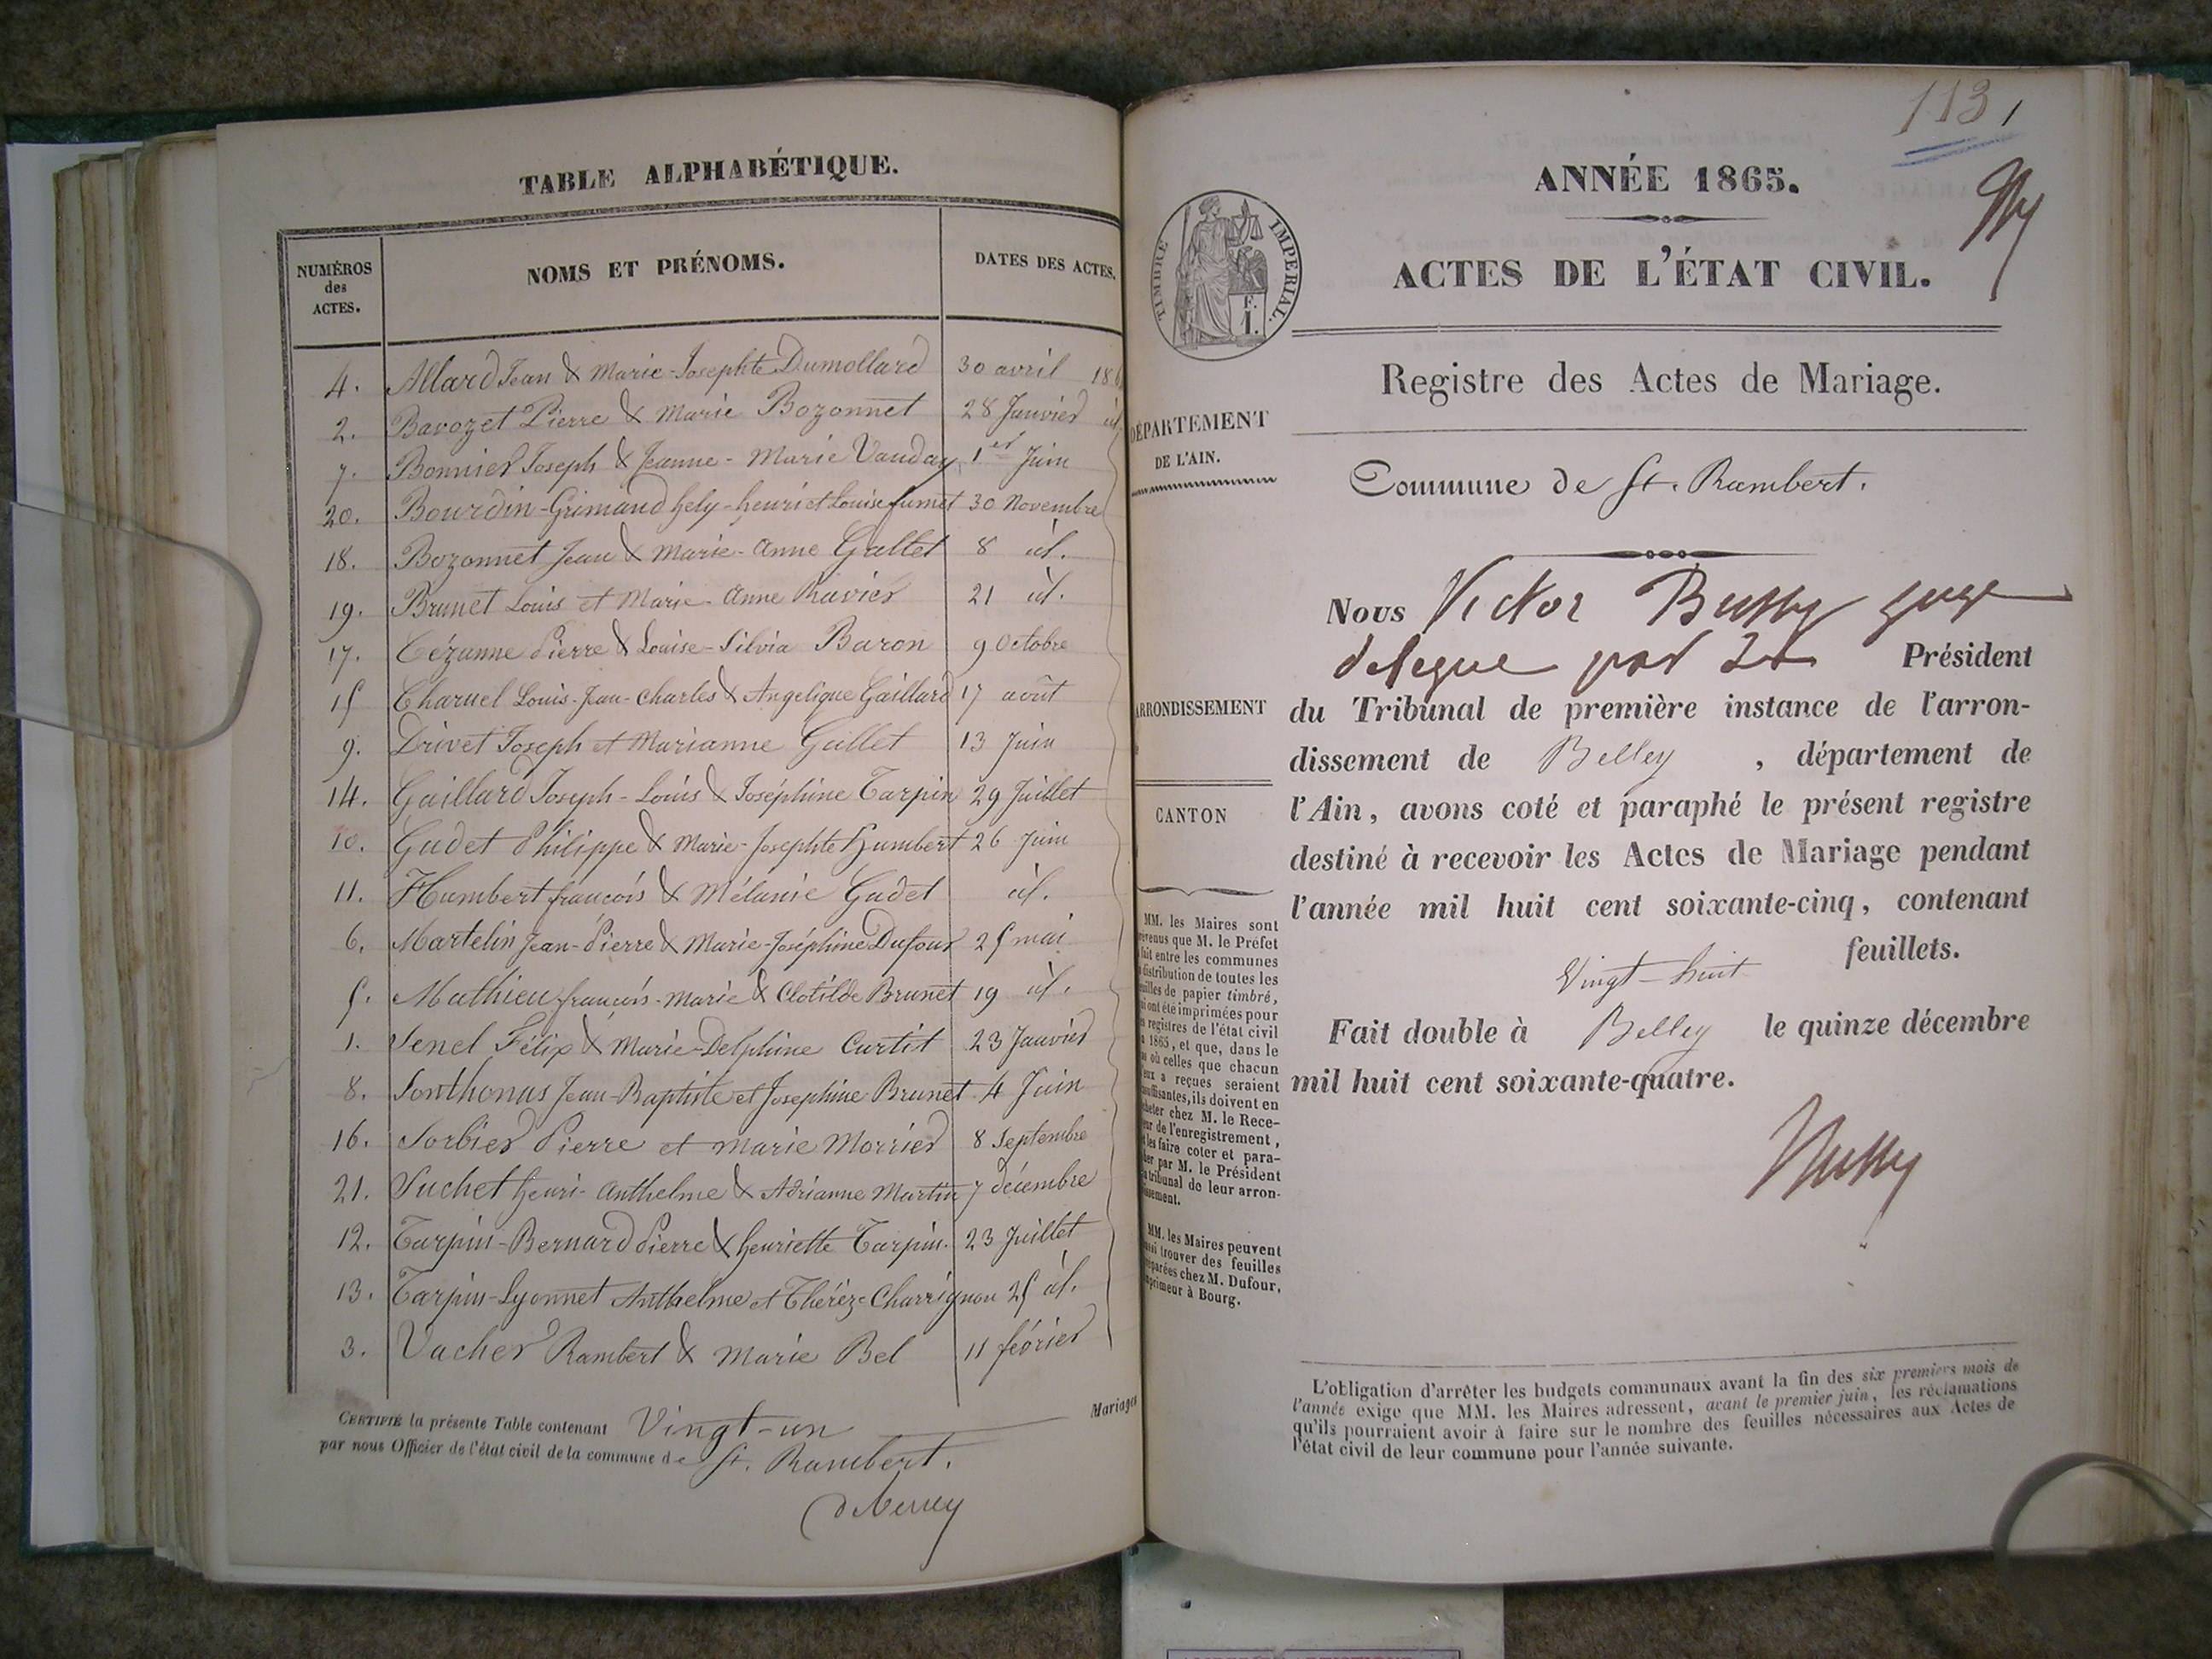 TABLE ALPHABÉTIQUE.
NUMÉROS des ACTES.
NOMS ET PRÉNOMS.
DATES DES ACTES.
4. Allard Jean & Marie-Josephte Dumollard 30 avril
2. Bavozet Pierre & Marie Bozonnet 28 Janvier id.
7. Bonnier Joseph & Jeanne-Marie Vauday 1er Juin
20. Bourdin-Grimaud hely-henri et Louise fumet 30 Novembre
18. Bozonnet Jean & Marie-Anne Gallet 8 id.
19. Brunet Louis et Marie-Anne Ravier 21 id.
17. Cézanne Pierre & Louise-Silvia Baron 9 Octobre
15 Charuel Louis-Jean-Charles & Angelique Gaillard 17 août
9. Drivet Joseph et Marianne Gallet 13 Juin
14. Gaillard Joseph-Louis & Joséphine Tarpin 29 Juillet
10. Gudet Philippe & Marie-Josephte Humbert 26 Juin
11. Humbert françois & Mélanie Gudet id.
6. Martelin Jean-Pierre & Marie-Joséphine Dufour 25 mai
5. Mathieu françois-marie & Clotilde Brunet 19 id.
1. Senel Félix & Marie-Delphine Curtit 23 Janvier
8. Sonthonas Jean-Baptiste et Josephine Brunet 4 Juin
16. Sorbier Pierre et Marie Morrier 8 Septembre
21. Suchet henri-Anthelme & Adrianne Martin 7 décembre
12. Tarpin-Bernard Pierre & henriette Tarpin. 23 Juillet
13. Tarpin-Lyonnet Anthelme et Thérèze Charrignon 25 id.
3. Vacher Rambert & Marie Bel 11 février
Mariages
CERTIFIÉ la présente Table contenant Vingt-un
par nous Officier de l'état civil de la commune de St. Rambert.
113 1
ANNÉE 1865.
TIMBRE IMPERIAL.
ACTES DE L'ÉTAT CIVIL.
Registre des Actes de Mariage.
DÉPARTEMENT
DE L'AIN.
Commune de St. Rambert.
Nous Victor Bussy juge
délégué par Mr Président
ARRONDISSEMENT
du Tribunal de première instance de l'arron-
dissement de Belley , département de
l'Ain, avons coté et paraphé le présent registre
CANTON
destiné à recevoir les Actes de Mariage pendant
l'année mil huit cent soixante-cinq, contenant
Vingt-huit feuillets.
Fait double à Belley le quinze décembre
mil huit cent soixante-quatre.
Bussy
MM. les Maires sont
prévenus que M. le Préfet
fait entre les communes
distribution de toutes les
feuilles de papier timbré,
qui ont été imprimées pour
les registres de l'état civil
1865, et que, dans le
cas où celles que chacun
d'eux a reçues seraient
insuffisantes, ils doivent en
acheter chez M. le Rece-
veur de l'enregistrement,
et les faire coter et para-
pher par M. le Président
du tribunal de leur arron-
dissement.
MM. les Maires peuvent
aussi trouver des feuilles
préparées chez M. Dufour,
imprimeur à Bourg.
L'obligation d'arrêter les budgets communaux avant la fin des six premiers mois de
l'année exige que MM. les Maires adressent, avant le premier juin, les réclamations
qu'ils pourraient avoir à faire sur le nombre des feuilles nécessaires aux Actes de
l'état civil de leur commune pour l'année suivante.